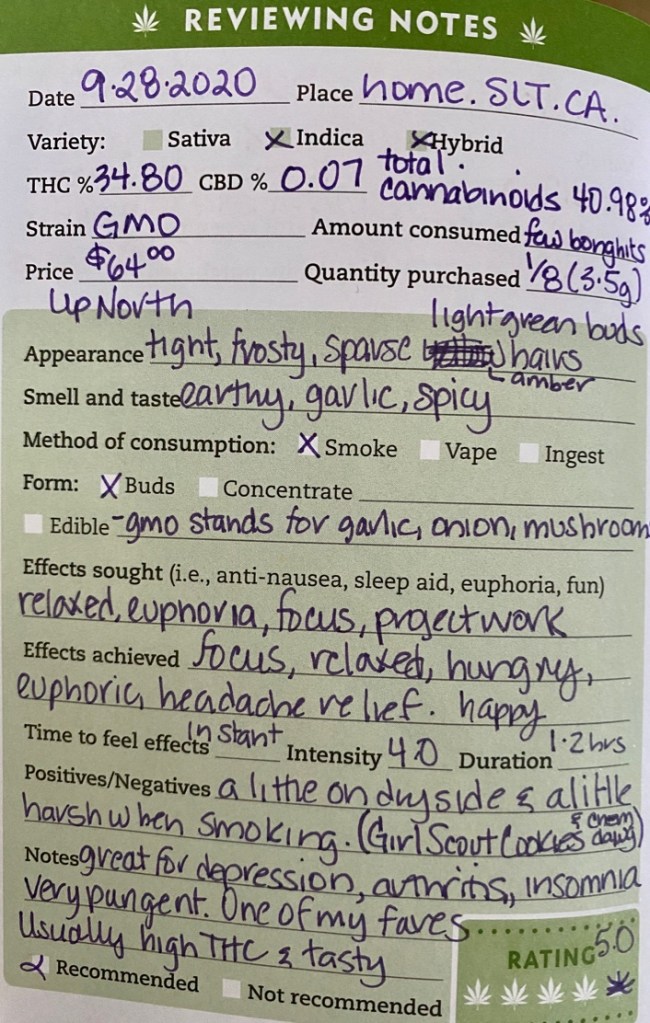 REVIEWING NOTES
Date 9.28.2020 Place home. SLT. CA.
Variety: Sativa X Indica X Hybrid
THC % 34.80 CBD % 0.07 total cannabinoids 40.98%
Strain GMO Amount consumed few bonghits
Price $64.00 Quantity purchased 1/8 (3.5g)
Up North light green buds
Appearance tight, frosty, sparse hairs
amber
Smell and taste earthy, garlic, spicy
Method of consumption: X Smoke Vape Ingest
Form: X Buds Concentrate
Edible - gmo stands for garlic, onion, mushroom
Effects sought (i.e., anti-nausea, sleep aid, euphoria, fun)
relaxed, euphoria, focus, project work
Effects achieved focus, relaxed, hungry,
euphoric, headache relief. happy
Time to feel effects instant Intensity 4.0 Duration 1.2 hrs
Positives/Negatives a little on dry side & a little
harsh when smoking. (Girl Scout Cookies & chem dawg)
Notes great for depression, arthritis, insomnia
very pungent. One of my faves
Usually high THC & tasty
Recommended Not recommended
RATING 5.0